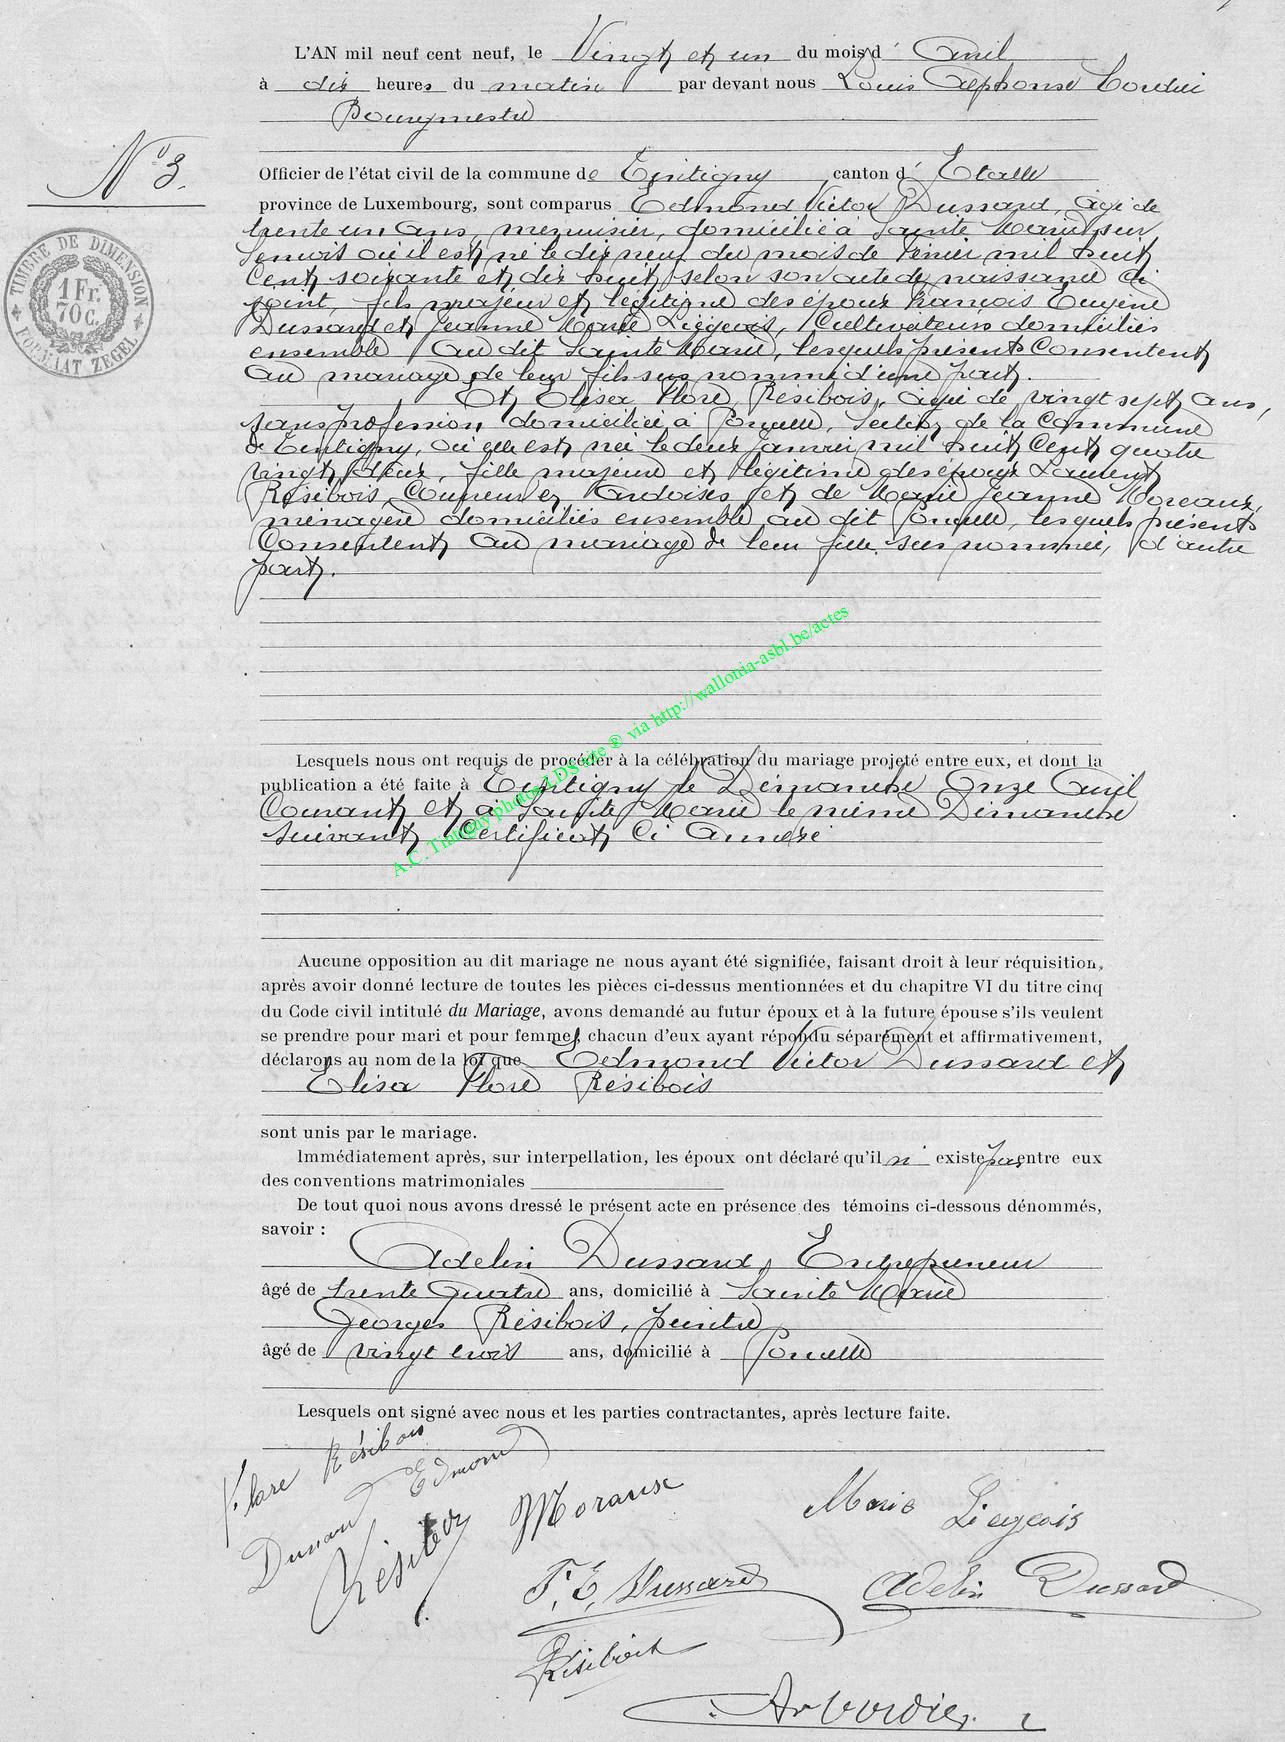 L'AN mil neuf cent neuf, le Vingt et un du mois d' Avril
à dix heures du matin par devant nous Louis Alphonse
Bourgmestre
N° 3.
Officier de l'état civil de la commune de Tintigny, canton d' Etalle
province de Luxembourg, sont comparus Edmond Victor Dussard, âgé de
trente un ans, menuisier, domicilié à Sainte Marie sur
Semois où il est né le dix neuf du mois de Février mil huit
Cent soixante et dix huit, selon son acte de naissance ci
joint, fils majeur et légitime des époux François Eugène
Dussard et Jeanne Marie Liégeois, Cultivateurs domiciliés
ensemble au dit Sainte Marie, lesquels présents Consentent
au mariage de leur fils sus nommé d'une part.
Et Elisa Flore Résibois, âgée de vingt sept ans,
sans profession domiciliée à Poncelle, Section de la Commune
de Tintigny, où elle est née le deux Janvier mil huit Cent quatre
vingt deux, fille majeure et légitime des époux Laurent
Résibois, Couvreur en ardoises et de Marie Jeanne Moreaux,
ménagère domiciliés ensemble au dit Poncelle, lesquels présents
Consentent au mariage de leur fille sus nommée, d'autre
part.
Lesquels nous ont requis de procéder à la célébration du mariage projeté entre eux, et dont la
publication a été faite à Tintigny le Dimanche Onze Avril
Courant et à Sainte Marie le même Dimanche
suivant Certificat Ci Annexé
Aucune opposition au dit mariage ne nous ayant été signifiée, faisant droit à leur réquisition,
après avoir donné lecture de toutes les pièces ci-dessus mentionnées et du chapitre VI du titre cinq
du Code civil intitulé du Mariage, avons demandé au futur époux et à la future épouse s'ils veulent
se prendre pour mari et pour femme, chacun d'eux ayant répondu séparément et affirmativement,
déclarons au nom de la loi que Edmond Victor Dussard et
Elisa Flore Résibois
sont unis par le mariage.
Immédiatement après, sur interpellation, les époux ont déclaré qu'il n' existe pas entre eux
des conventions matrimoniales
De tout quoi nous avons dressé le présent acte en présence des témoins ci-dessous dénommés,
savoir :
Adelin Dussard, Entrepreneur
âgé de trente Quatre ans, domicilié à Sainte Marie
Georges Résibois, peintre
âgé de vingt trois ans, domicilié à Poncelle
Lesquels ont signé avec nous et les parties contractantes, après lecture faite.
Flore Résibois
Dussard Edmond
Résibois
Moraux
Marie Liégeois
F. E. Dussard
Adelin Dussard
Résibois
TIMBRE DE DIMENSION
1 Fr.
70 C.
FORMAAT ZEGEL
A.C. Tintigny photos LDS site ® via http://wallonia-asbl.be/actes